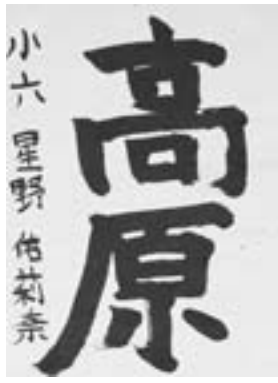 高原
小六 星野 佑莉奈